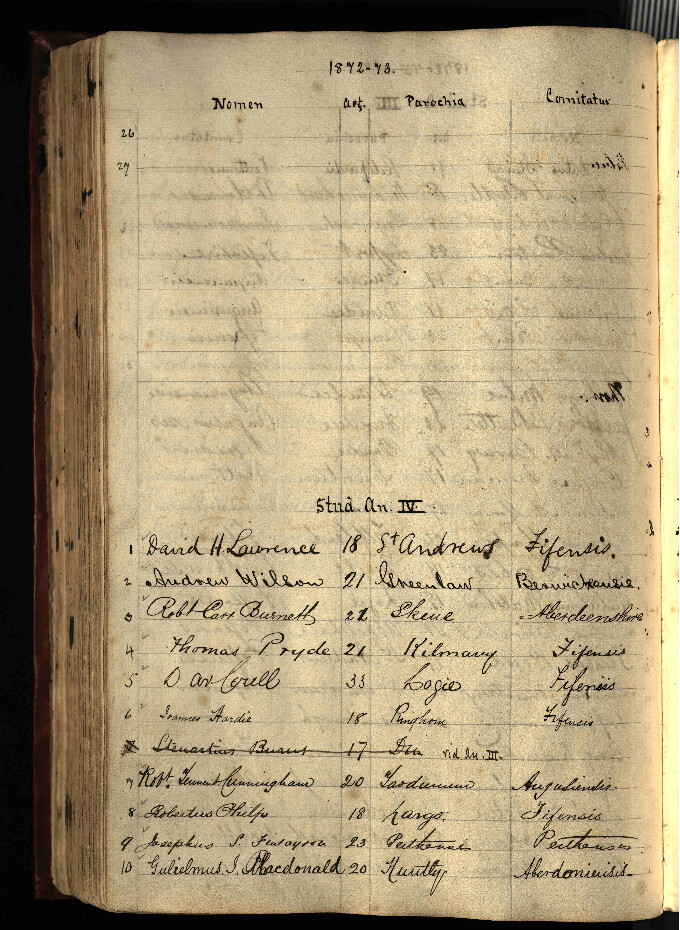 1872-73.
Nomen Aet. Parochia Comitatus
26
27
Stud. An. IV.
1 David H Lawrence 18 St Andrews Fifensis.
2 Andrew Wilson 21 Greenlaw Berwickensis.
3 Robt Carr Burnett 22 Skene Aberdeenshire
4 Thomas Pryde 21 Kilmany Fifensis
5 Dav Coull 33 Logie Fifensis
6 Ioannes Hardie 18 Kinghorn Fifensis
Steuartius Burns 17 vid An. III.
7 Robt. Tennent Cunningham 20 Taodunum Angusiensis.
8 Robertus Philp 18 Largo. Fifensis
9 Josephus S. Finlayson 23 Perthensis Perthensis.
10 Gulielmus. J. Macdonald 20 Huntly Aberdoniensis